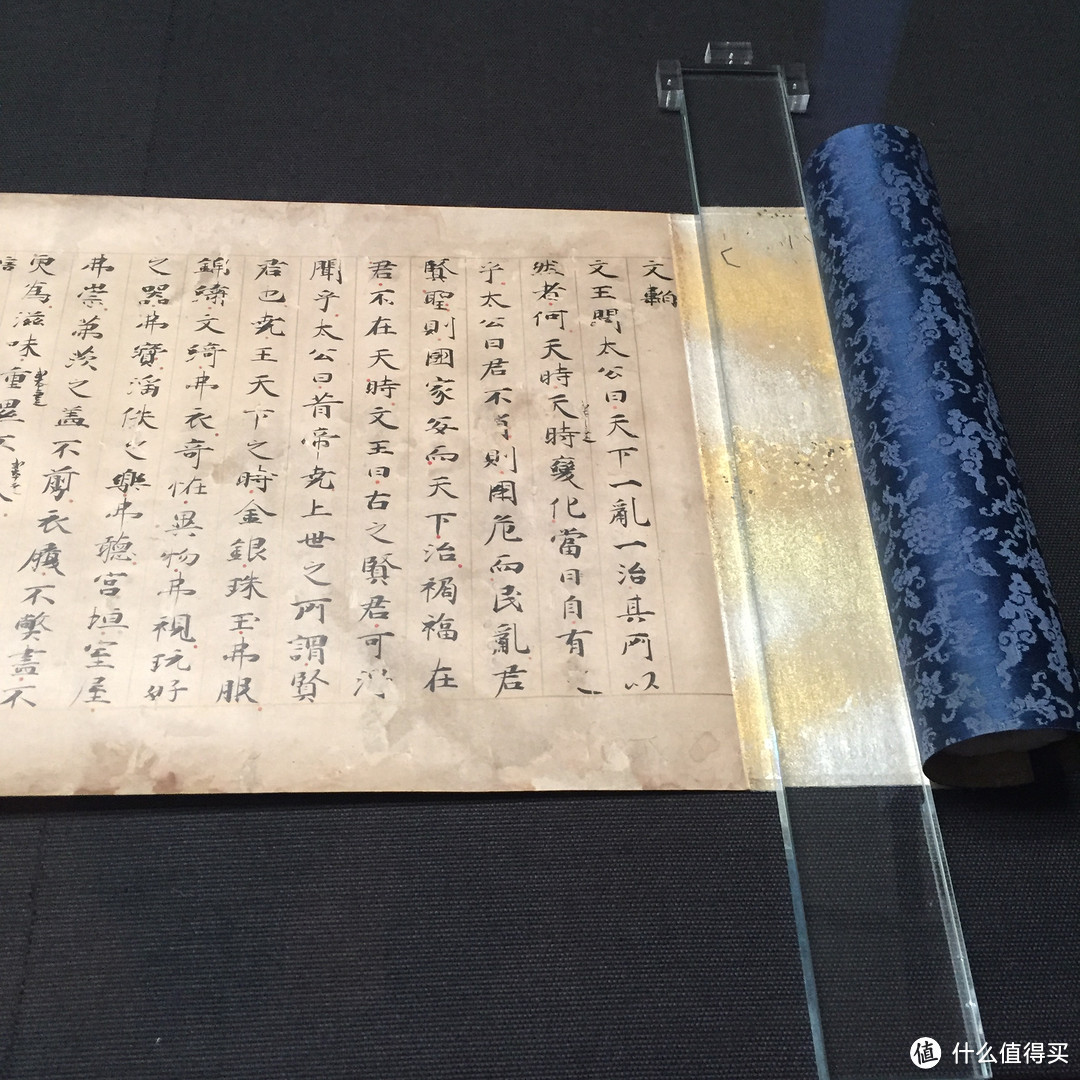 文韜
文王問太公曰天下一亂一治其所以
然者何天時變化當日自有之
乎太公曰君不肖則國危而民亂君
賢聖則國家安而天下治禍福在
君不在天時文王曰古之賢君可得
聞乎太公曰昔帝堯上世之所謂賢
君也堯王天下之時金銀珠玉弗服
錦繡文綺弗衣奇恠異物弗視玩好
之器弗寶滛佚之樂弗聽宮垣室屋
弗崇茅茨之盖不剪衣履不弊盡不
更為滋味重
什么值得买